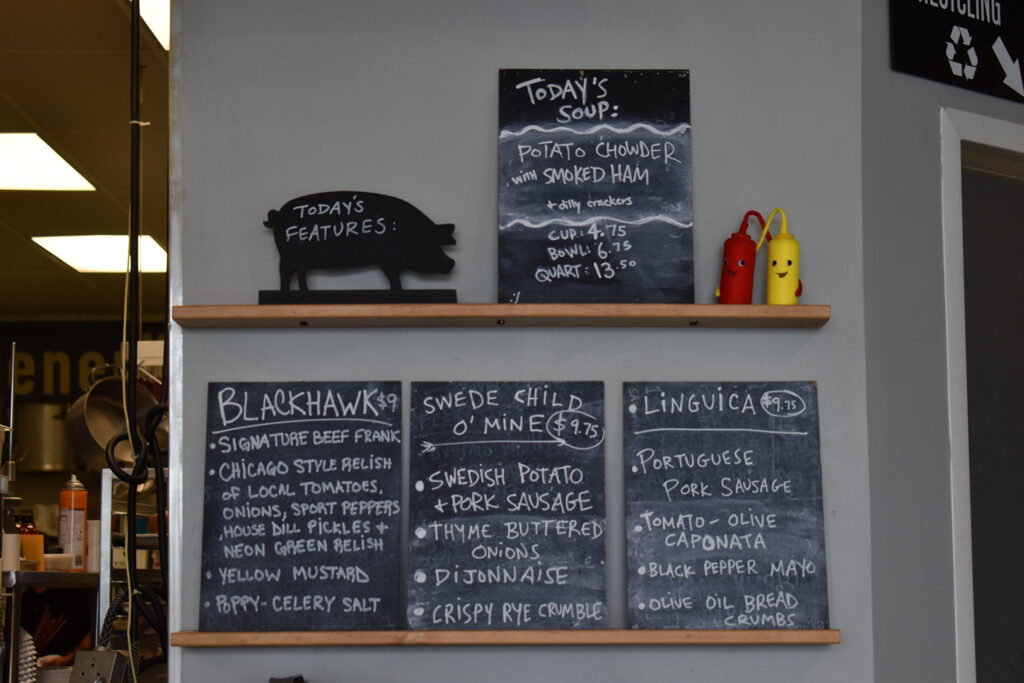 RECYCLING
TODAY'S
SOUP:
POTATO CHOWDER
with SMOKED HAM
+ dilly crackers
CUP: 4.75
BOWL: 6.75
QUART: 13.50
TODAY'S
FEATURES:
BLACKHAWK $9
• SIGNATURE BEEF FRANK
• CHICAGO STYLE RELISH
OF LOCAL TOMATOES,
ONIONS, SPORT PEPPERS
, HOUSE DILL PICKLES +
NEON GREEN RELISH
• YELLOW MUSTARD
• POPPY-CELERY SALT
SWEDE CHILD
O' MINE $9.75
• SWEDISH POTATO
+ PORK SAUSAGE
• THYME BUTTERED
ONIONS
• DIJONNAISE
• CRISPY RYE CRUMBLE
• LINGUICA $9.75
• PORTUGUESE
PORK SAUSAGE
• TOMATO-OLIVE
CAPONATA
• BLACK PEPPER MAYO
• OLIVE OIL BREAD
CRUMBS